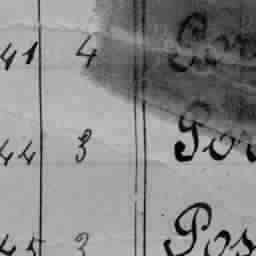 41 4
44 3 Por
45 3 Pos